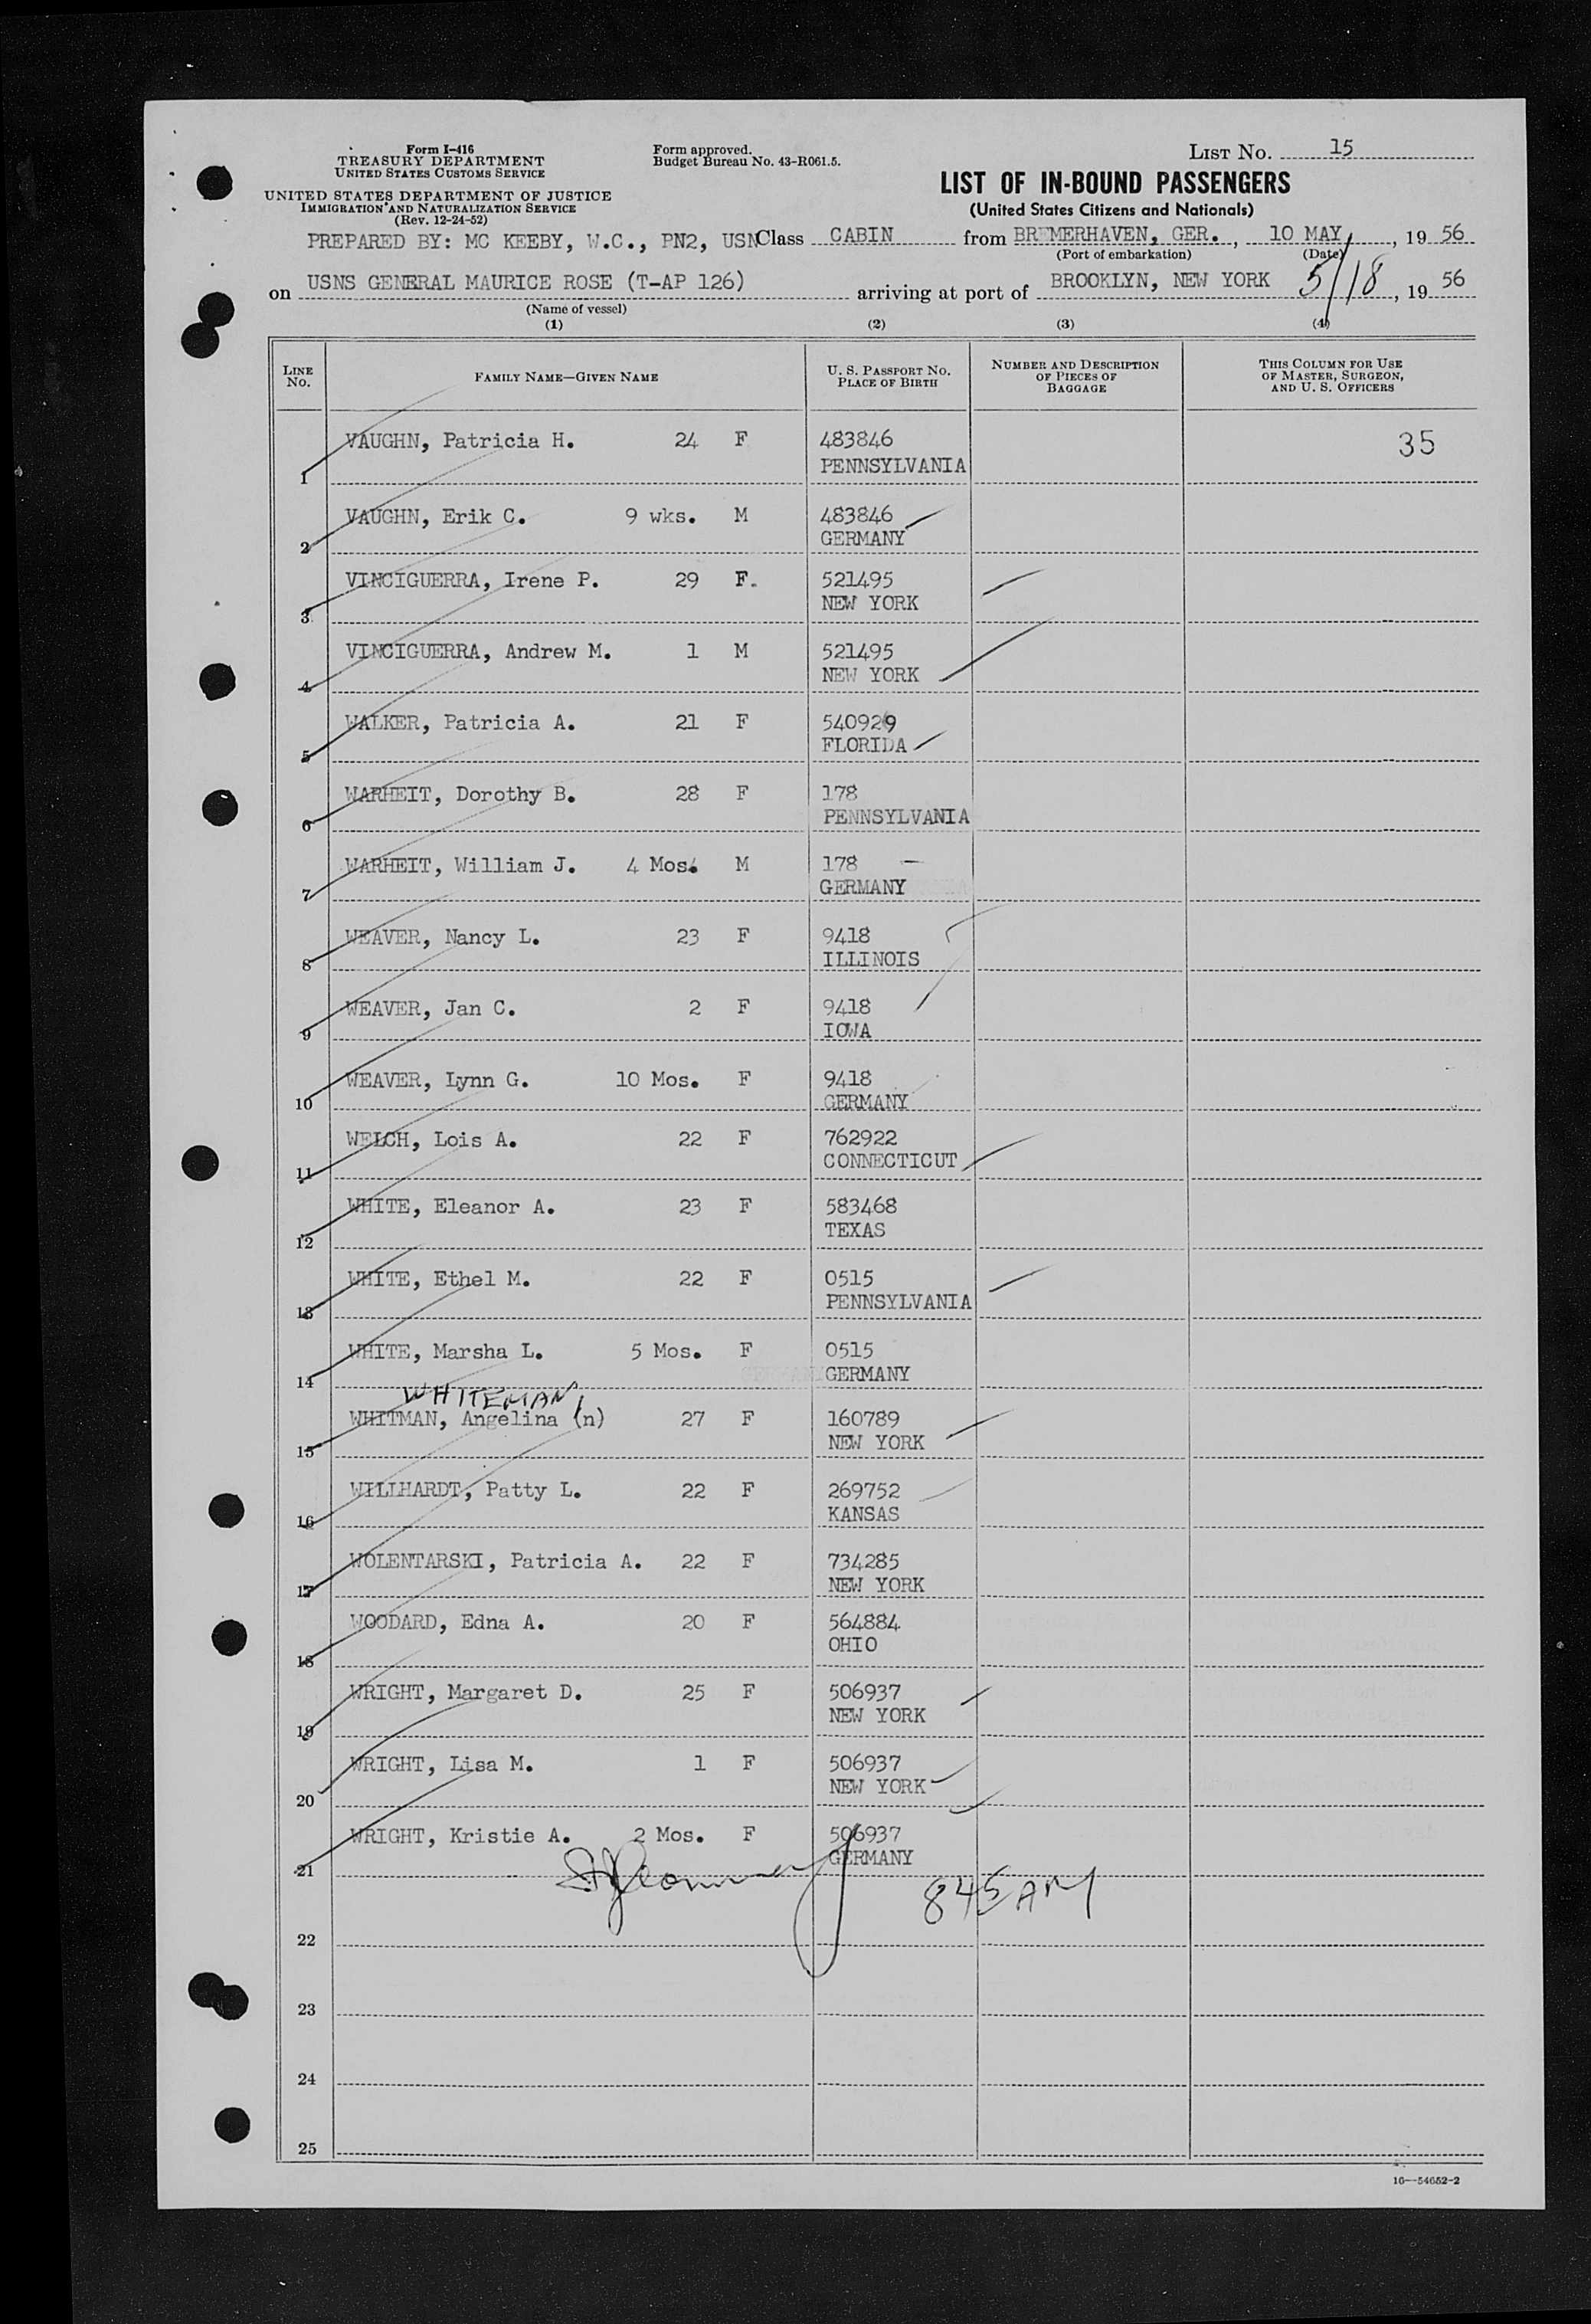 Form I-416
TREASURY DEPARTMENT
UNITED STATES CUSTOMS SERVICE
UNITED STATES DEPARTMENT OF JUSTICE
IMMIGRATION AND NATURALIZATION SERVICE
(Rev. 12-24-52)
Form approved.
Budget Bureau No. 43-R061.5.
LIST NO. 15
LIST OF IN-BOUND PASSENGERS
(United States Citizens and Nationals)
PREPARED BY: MC KEEBY, W.C., PN2, USN Class CABIN from BREMERHAVEN, GER., 10 MAY, 1956
(Port of embarkation) (Date)
on USNS GENERAL MAURICE ROSE (T-AP 126) arriving at port of BROOKLYN, NEW YORK 5/18, 1956
(Name of vessel)
(1) (2) (3) (4)
LINE NO. FAMILY NAME—GIVEN NAME U. S. PASSPORT NO. PLACE OF BIRTH NUMBER AND DESCRIPTION OF PIECES OF BAGGAGE THIS COLUMN FOR USE OF MASTER, SURGEON, AND U. S. OFFICERS
VAUGHN, Patricia H. 24 F 483846 35
1 PENNSYLVANIA
VAUGHN, Erik C. 9 wks. M 483846
2 GERMANY
VINCIGUERRA, Irene P. 29 F. 521495
3 NEW YORK
VINCIGUERRA, Andrew M. 1 M 521495
4 NEW YORK
WALKER, Patricia A. 21 F 540929
5 FLORIDA
WARHEIT, Dorothy B. 28 F 178
6 PENNSYLVANIA
WARHEIT, William J. 4 Mos. M 178
7 GERMANY
WEAVER, Nancy L. 23 F 9418
8 ILLINOIS
WEAVER, Jan C. 2 F 9418
9 IOWA
WEAVER, Lynn G. 10 Mos. F 9418
10 GERMANY
WELCH, Lois A. 22 F 762922
11 CONNECTICUT
WHITE, Eleanor A. 23 F 583468
12 TEXAS
WHITE, Ethel M. 22 F 0515
13 PENNSYLVANIA
WHITE, Marsha L. 5 Mos. F 0515
14 GERMANY
WHITEMAN,
WHITMAN, Angelina (n) 27 F 160789
15 NEW YORK
WILLHARDT, Patty L. 22 F 269752
16 KANSAS
WOLENTARSKI, Patricia A. 22 F 734285
17 NEW YORK
WOODARD, Edna A. 20 F 564884
18 OHIO
WRIGHT, Margaret D. 25 F 506937
19 NEW YORK
WRIGHT, Lisa M. 1 F 506937
20 NEW YORK
WRIGHT, Kristie A. 2 Mos. F 506937
21 GERMANY
845 AM
22
23
24
25
16—54652-2